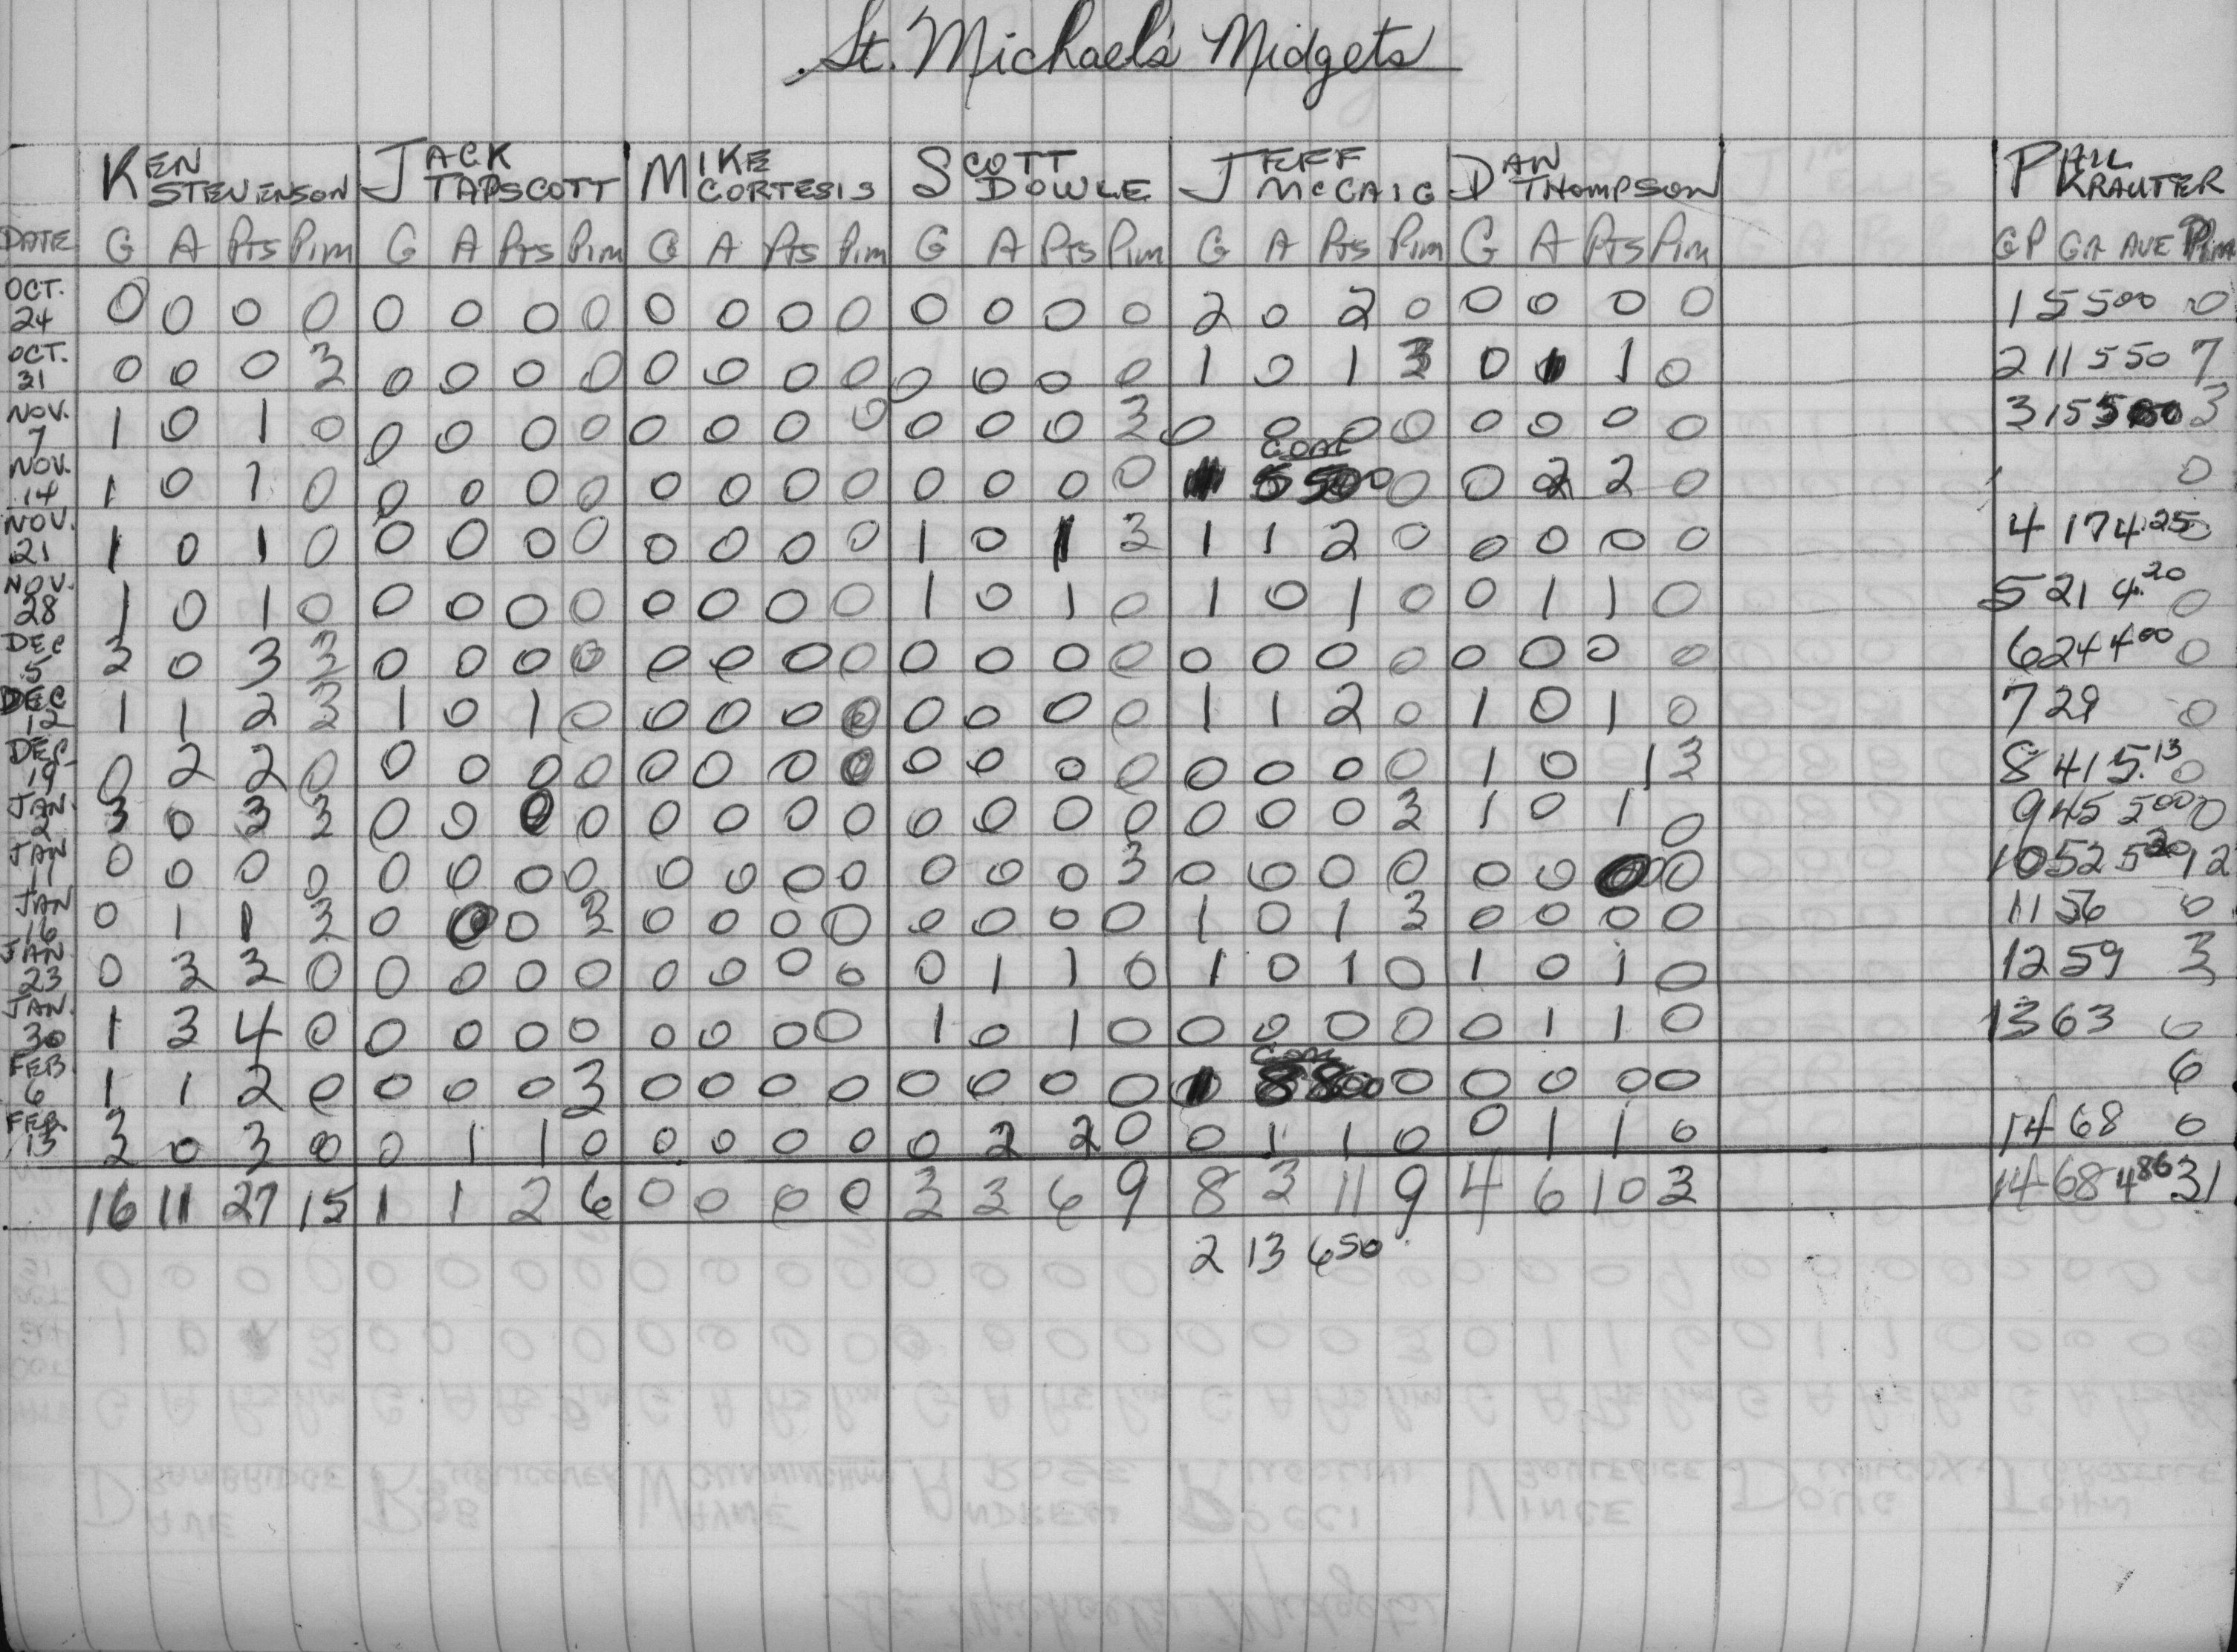 St. Michael's Midgets
KEN STEVENSON JACK TAPSCOTT MIKE CORTESIS SCOTT DOWLE JEFF McCAIG DAN THOMPSON PAUL KRAUTER
DATE G A Pts Pim G A Pts Pim G A Pts Pim G A Pts Pim G A Pts Pim G A Pts Pim GP GA AVE Pim
OCT. 24 0 0 0 0 0 0 0 0 0 0 0 0 0 0 0 0 2 0 2 0 0 0 0 0 1 5 5 00 0
OCT. 31 0 0 0 3 0 0 0 0 0 0 0 0 0 0 0 0 1 0 1 3 0 1 1 0 2 11 5 50 7
NOV. 7 1 0 1 0 0 0 0 0 0 0 0 0 0 0 0 3 0 0 0 0 0 0 0 0 3 15 5 00 3
NOV. 14 1 0 1 0 0 0 0 0 0 0 0 0 0 0 0 0 GOAL 1 5 5 00 0 0 2 2 0 0
NOV. 21 1 0 1 0 0 0 0 0 0 0 0 0 1 0 1 3 1 1 2 0 0 0 0 0 4 17 4.25 0
NOV. 28 1 0 1 0 0 0 0 0 0 0 0 0 1 0 1 0 1 0 1 0 0 1 1 0 5 21 4.20 0
DEC 5 3 0 3 3 0 0 0 0 0 0 0 0 0 0 0 0 0 0 0 0 0 0 0 0 6 24 4 00 0
DEC 12 1 1 2 3 1 0 1 0 0 0 0 0 0 0 0 0 1 1 2 0 1 0 1 0 7 29 0
DEC 19 0 2 2 0 0 0 0 0 0 0 0 0 0 0 0 0 0 0 0 0 1 0 1 3 8 41 5.13 0
JAN. 2 3 0 3 3 0 0 0 0 0 0 0 0 0 0 0 0 0 0 0 3 1 0 1 0 9 45 5 00 0
JAN 11 0 0 0 0 0 0 0 0 0 0 0 0 0 0 0 3 0 0 0 0 0 0 0 0 10 52 5 20 12
JAN 16 0 1 1 3 0 0 0 3 0 0 0 0 0 0 0 0 1 0 1 3 0 0 0 0 11 56 0
JAN 23 0 3 3 0 0 0 0 0 0 0 0 0 0 1 1 0 1 0 1 0 1 0 1 0 12 59 3
JAN. 30 1 3 4 0 0 0 0 0 0 0 0 0 1 0 1 0 0 0 0 0 0 1 1 0 13 63 0
FEB 6 1 1 2 0 0 0 0 3 0 0 0 0 0 0 0 0 GOAL 1 8 8 00 0 0 0 0 0 6
FEB. 13 3 0 3 0 0 1 1 0 0 0 0 0 0 2 2 0 0 1 1 0 0 1 1 0 14 68 0
16 11 27 15 1 1 2 6 0 0 0 0 3 3 6 9 8 3 11 9 4 6 10 3 14 68 4 86 31
2 13 6 50